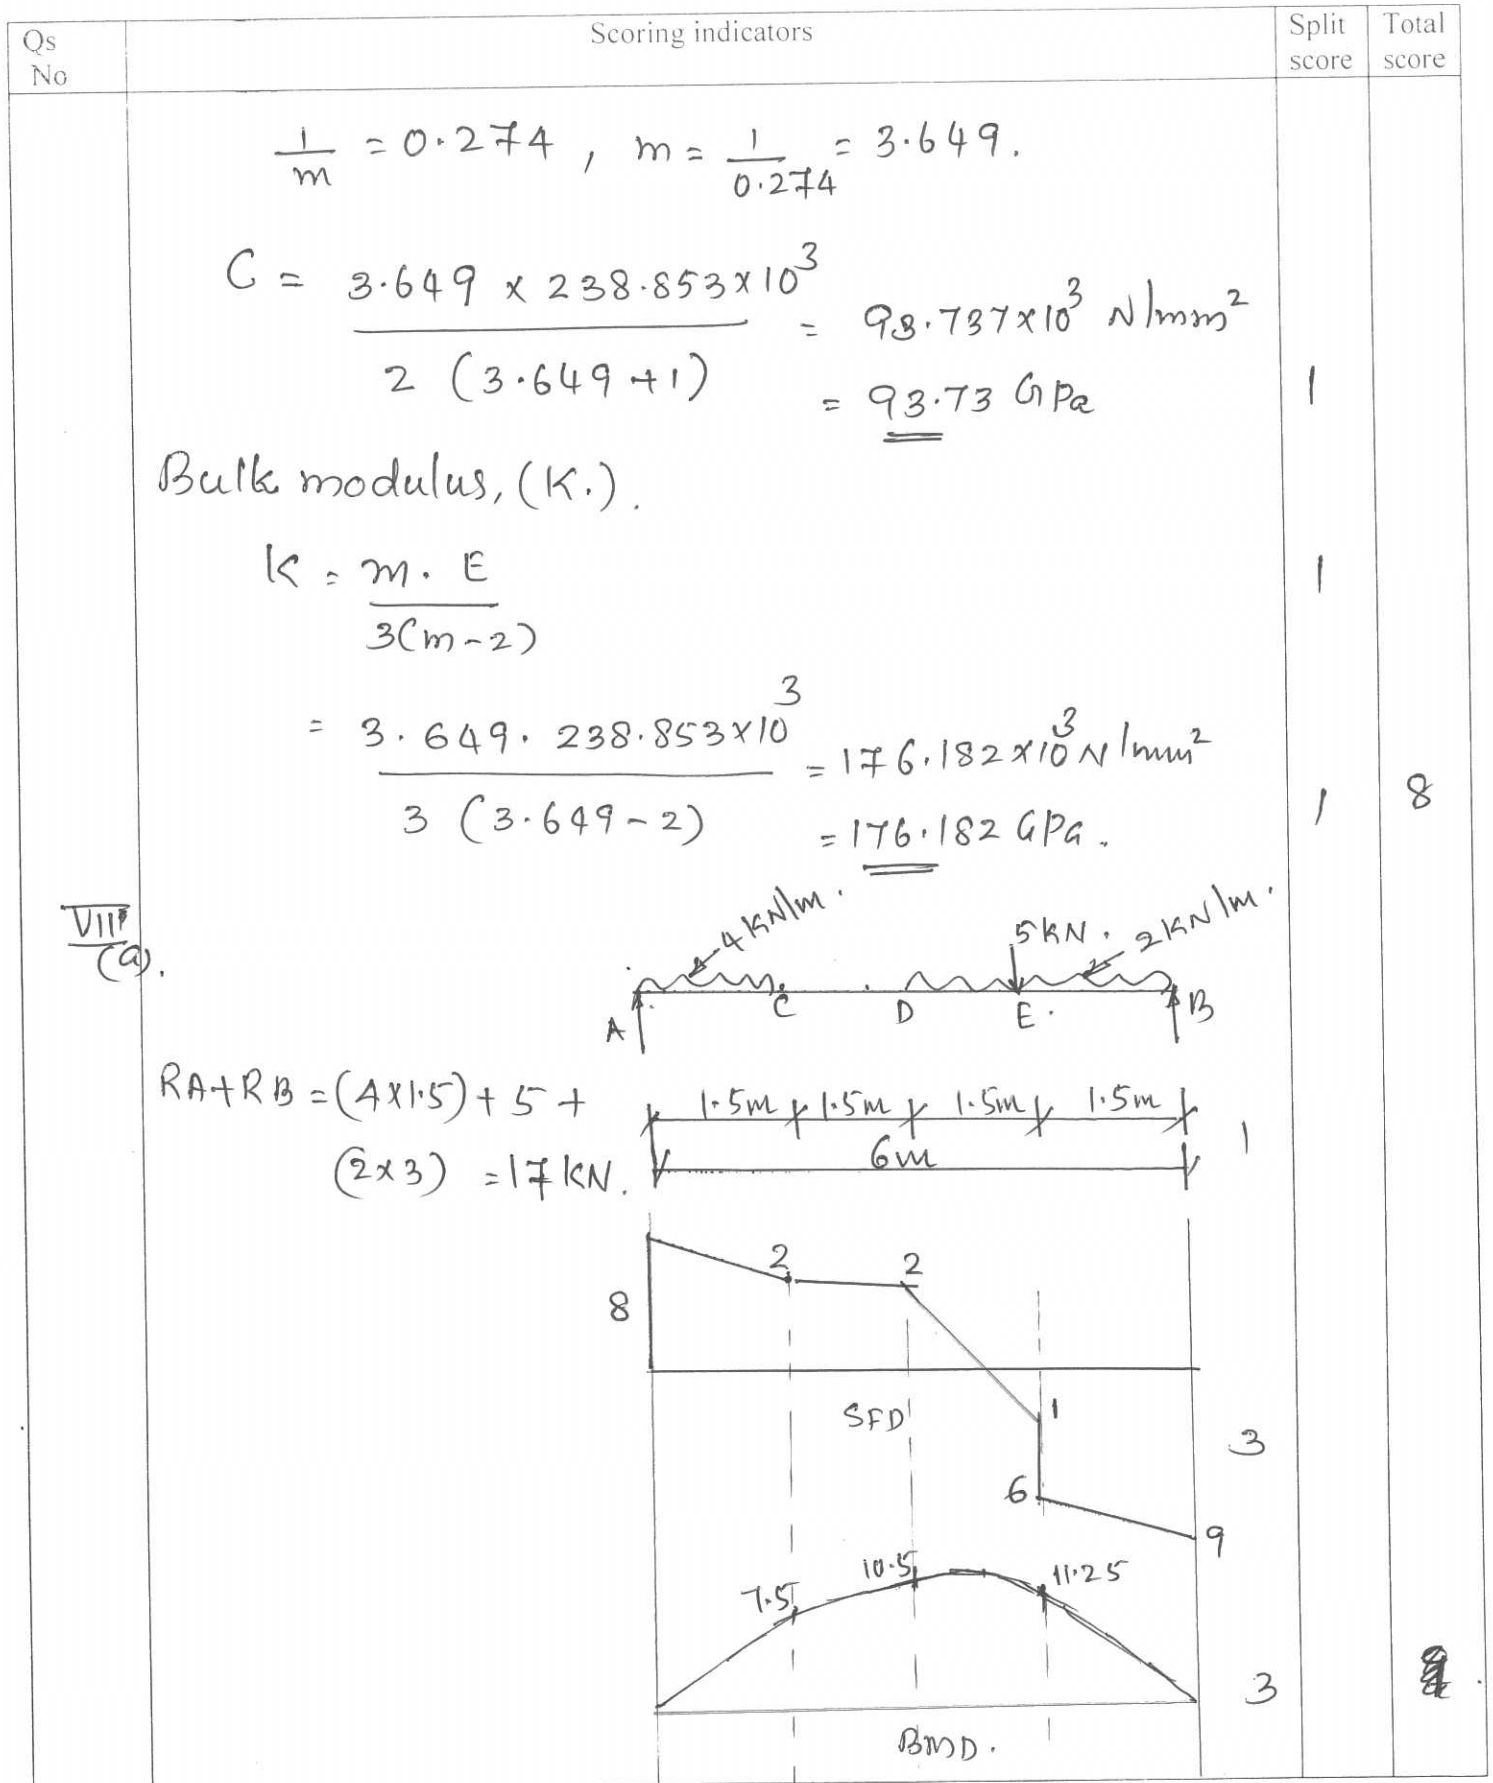 Qs No
Scoring indicators
Split score
Total score
1/m = 0.274 , m = 1/0.274 = 3.649.
C = 3.649 x 238.853 x 10³ / 2 (3.649 + 1) = 93.737 x 10³ N/mm²
= 93.73 GPa
1
Bulk modulus, (K.).
K = m. E / 3(m-2)
1
= 3.649. 238.853 x 10³ / 3 (3.649 - 2) = 176.182 x 10³ N/mm²
= 176.182 GPa.
1
8
VIII (a).
4 kN/m.
5 kN.
2 kN/m.
A
C
D
E.
B
RA+RB = (4x1.5) + 5 +
(2x3) = 17 KN.
1.5m 1.5m 1.5m 1.5m
6m
1
8
2
2
SFD
1
6
9
3
7.5
10.5
11.25
3
BMD.